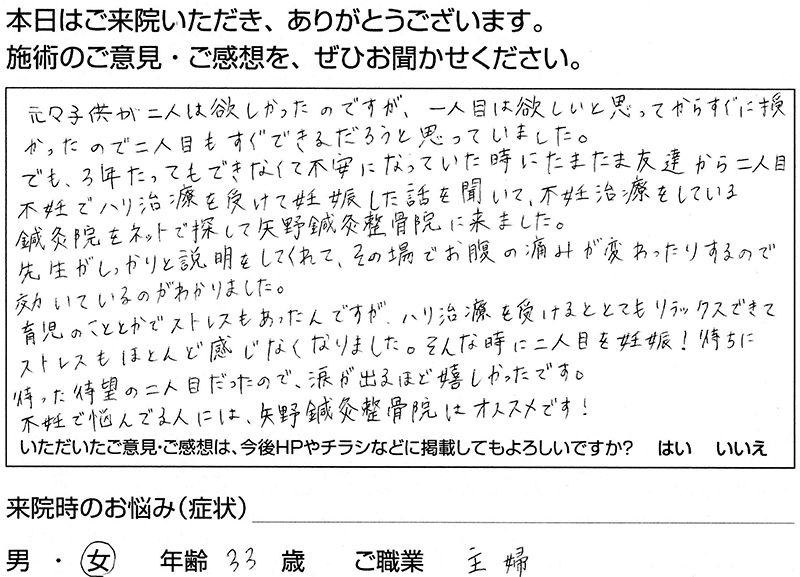 本日はご来院いただき、ありがとうございます。
施術のご意見・ご感想を、ぜひお聞かせください。
元々子供が二人は欲しかったのですが、一人目は欲しいと思ってからすぐに授
かったので二人目もすぐできるだろうと思っていました。
でも、3年たってもできなくて不安になっていた時にたまたま友達から二人目
不妊でハリ治療を受けて妊娠した話を聞いて、不妊治療をしている
鍼灸院をネットで探して矢野鍼灸整骨院に来ました。
先生がしっかりと説明をしてくれて、その場でお腹の痛みが変わったりするので
効いているのがわかりました。
育児のこととかでストレスもあったんですが、ハリ治療を受けるととてもリラックスできて
ストレスもほとんど感じなくなりました。そんな時に二人目を妊娠！待ちに
待った待望の二人目だったので、涙が出るほど嬉しかったです。
不妊で悩んでる人には、矢野鍼灸整骨院はオススメです！
いただいたご意見・ご感想は、今後HPやチラシなどに掲載してもよろしいですか？　はい　いいえ
来院時のお悩み（症状）
男 ・ 女　年齢 33 歳　ご職業　主婦